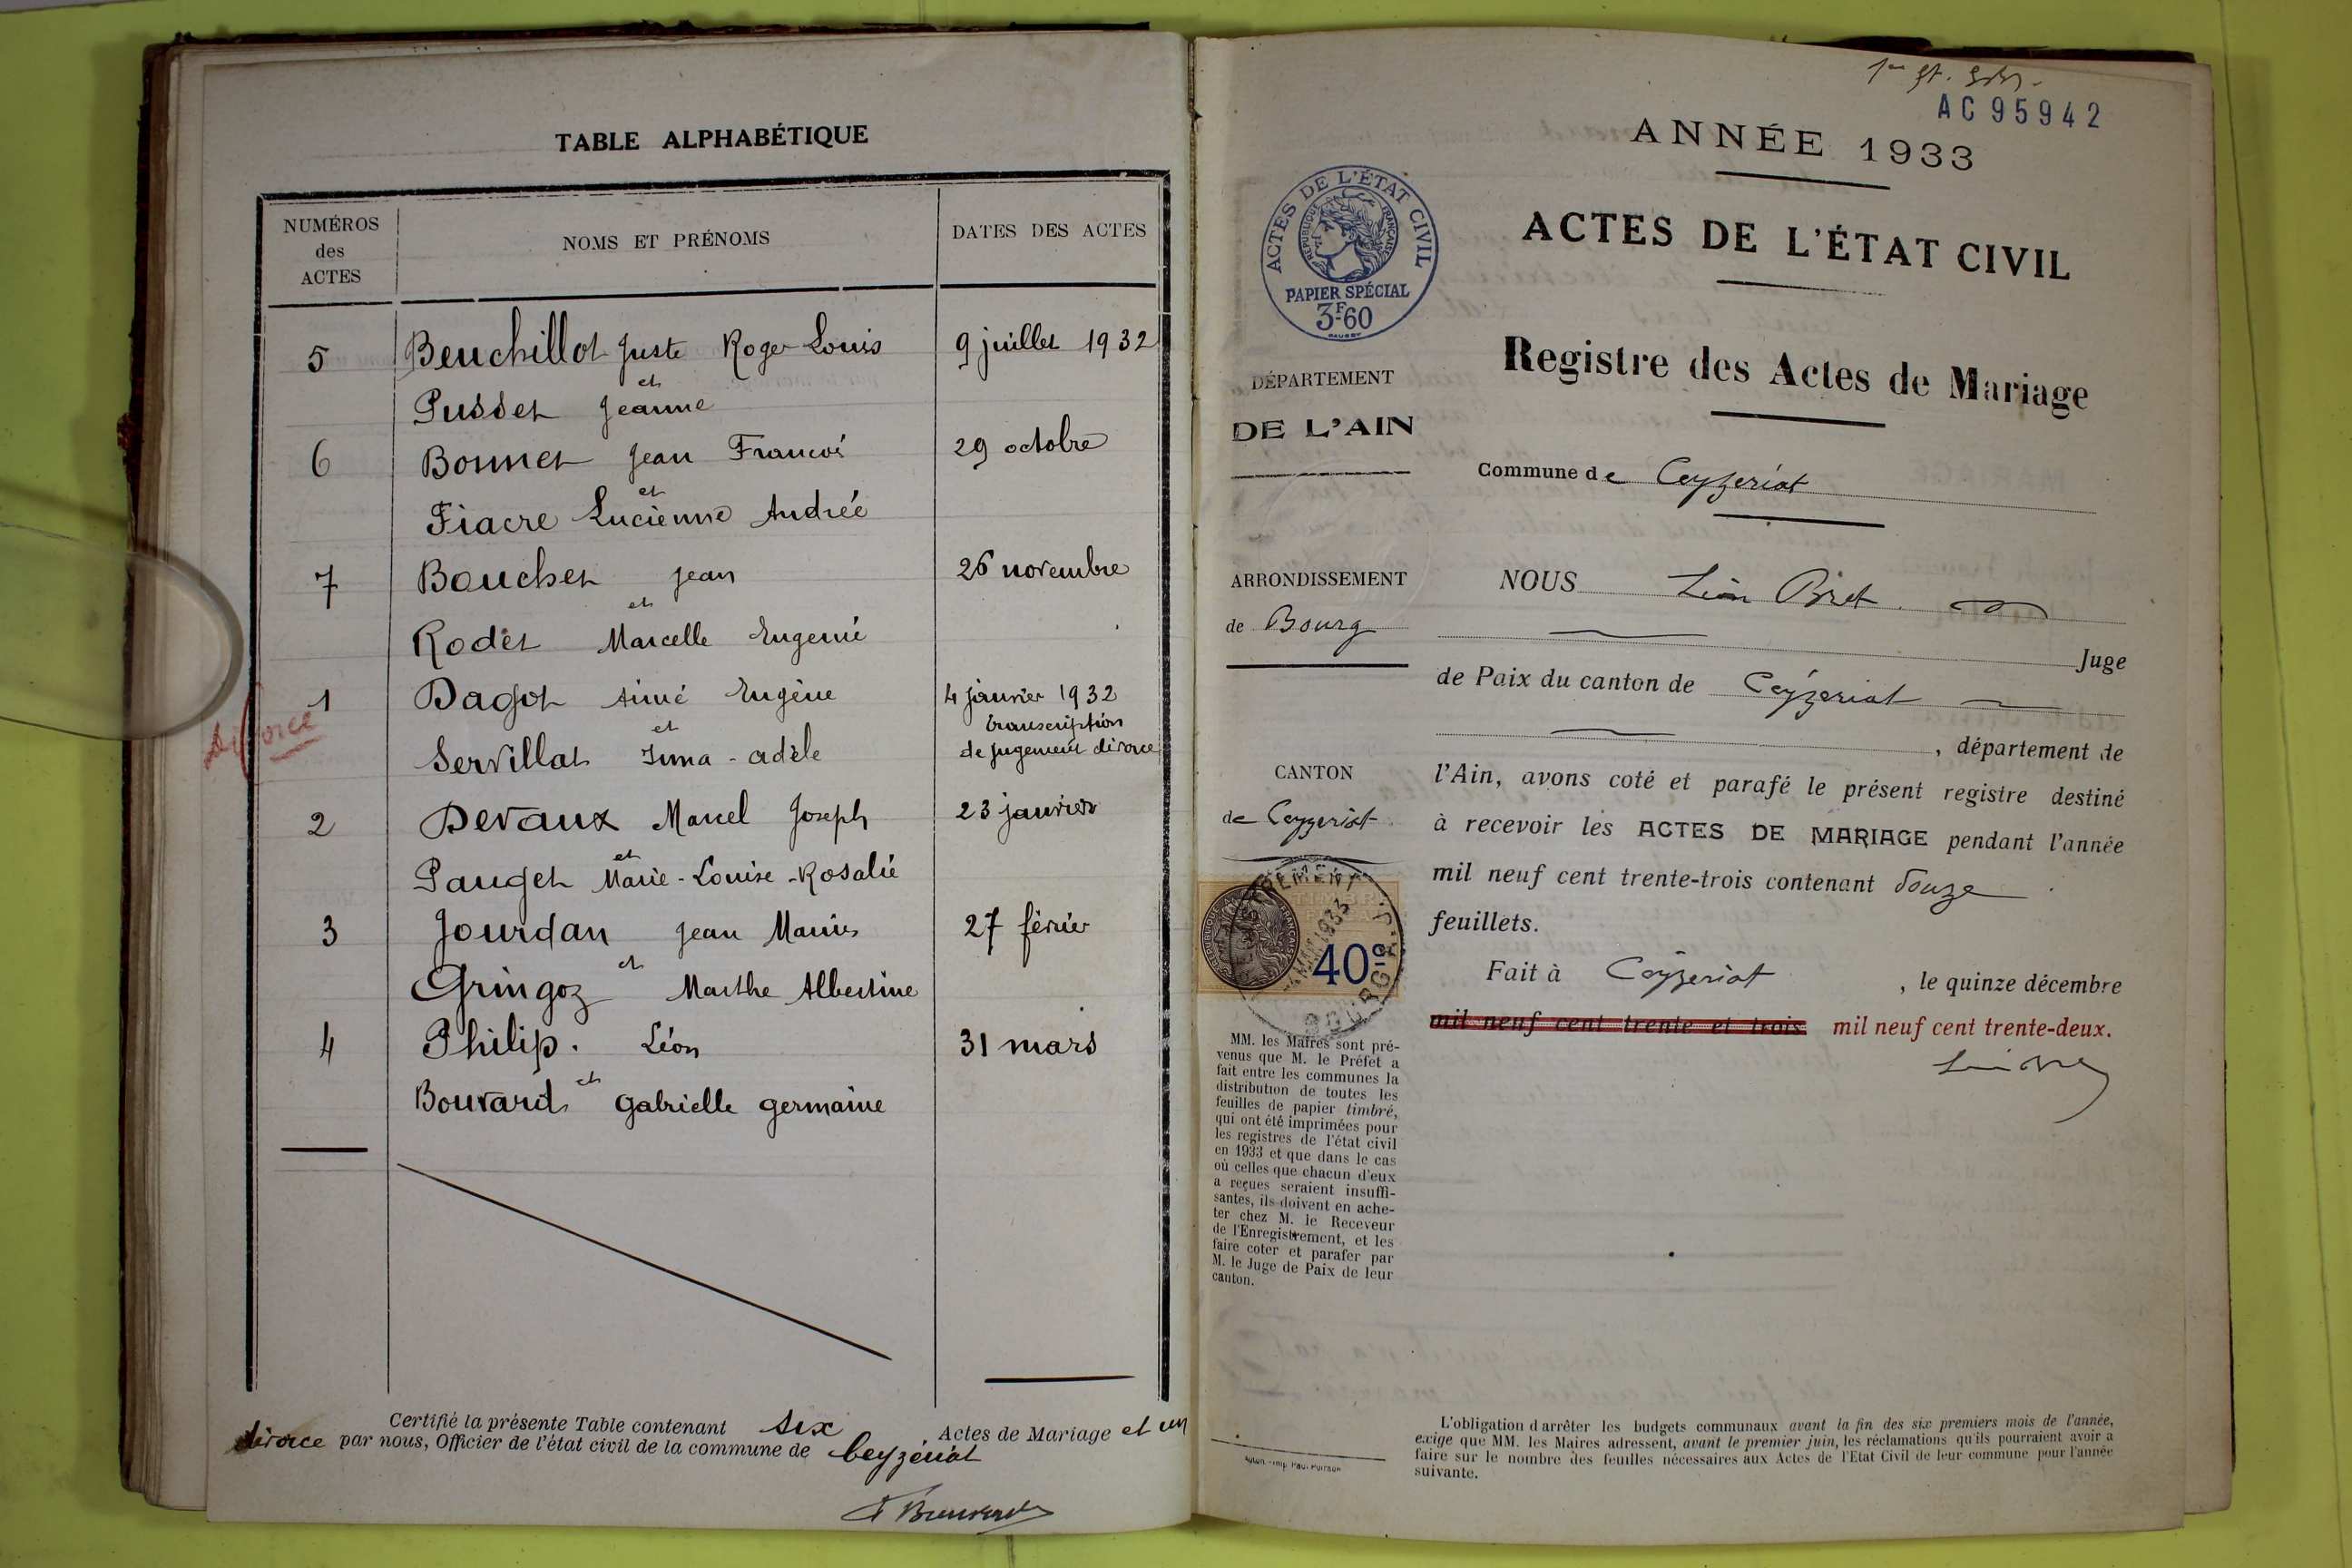 TABLE ALPHABÉTIQUE
NUMÉROS
des
ACTES
NOMS ET PRÉNOMS
DATES DES ACTES
5 Beuchillot Juste Roger Louis 9 juillet 1932
et
Pusset Jeanne
6 Bonnet Jean François 29 octobre
et
Fiacre Lucienne Andrée
7 Bouchet Jean 26 novembre
et
Rodet Marcelle Eugenie
1 Dagot Aimé Eugène 4 janvier 1932
divorce
et
transcription
Servillat Irma - adèle de jugement divorce
2 Devaux Marcel Joseph 23 janvier
et
Pauget Marie - Louise - Rosalie
3 Jourdan Jean Marius 27 février
et
Gringoz Marthe Albertine
4 Philip. Léon 31 mars
et
Bouvard Gabrielle germaine
Certifié la présente Table contenant six Actes de Mariage et un
divorce par nous, Officier de l'état civil de la commune de Ceyzériat
AC 95942
ANNÉE 1933
ACTES DE L'ÉTAT CIVIL
Registre des Actes de Mariage
ACTES DE L'ÉTAT CIVIL
RÉPUBLIQUE FRANÇAISE
PAPIER SPÉCIAL
3F.60
DÉPARTEMENT
DE L'AIN
Commune de Ceyzeriat
ARRONDISSEMENT
de Bourg
CANTON
de Ceyzeriat
NOUS Léon Piret
Juge
de Paix du canton de Ceyzeriat
, département de
l'Ain, avons coté et parafé le présent registre destiné
à recevoir les ACTES DE MARIAGE pendant l'année
mil neuf cent trente-trois contenant douze
feuillets.
Fait à Ceyzeriat , le quinze décembre
mil neuf cent trente et trois mil neuf cent trente-deux.
40c
1933
BOURG
MM. les Maires sont pré-
venus que M. le Préfet a
fait entre les communes la
distribution de toutes les
feuilles de papier timbré,
qui ont été imprimées pour
les registres de l'état civil
en 1933 et que dans le cas
où celles que chacun d'eux
a reçues seraient insuffi-
santes, ils doivent en ache-
ter chez M. le Receveur
de l'Enregistrement, et les
faire coter et parafer par
M. le Juge de Paix de leur
canton.
L'obligation d'arrêter les budgets communaux avant la fin des six premiers mois de l'année,
exige que MM. les Maires adressent, avant le premier juin, les réclamations qu'ils pourraient avoir à
faire sur le nombre des feuilles nécessaires aux Actes de l'Etat Civil de leur commune pour l'année
suivante.